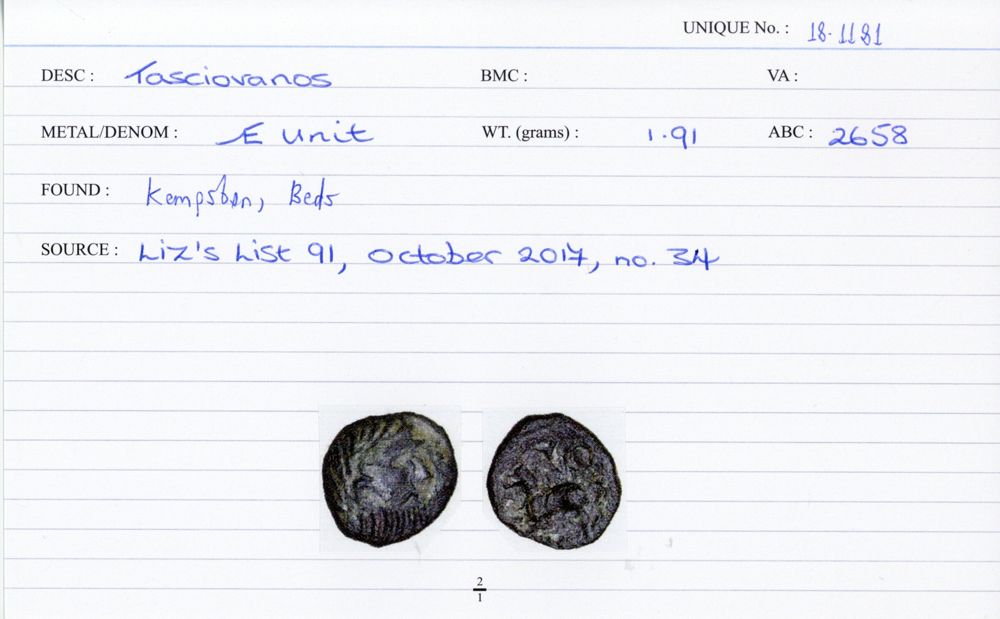 UNIQUE No. : 18.1181
DESC : Tasciovanos BMC : VA :
METAL/DENOM : Æ unit WT. (grams) : 1.91 ABC : 2658
FOUND : Kempston, Beds
SOURCE : Liz's List 91, October 2017, no. 34
2
1